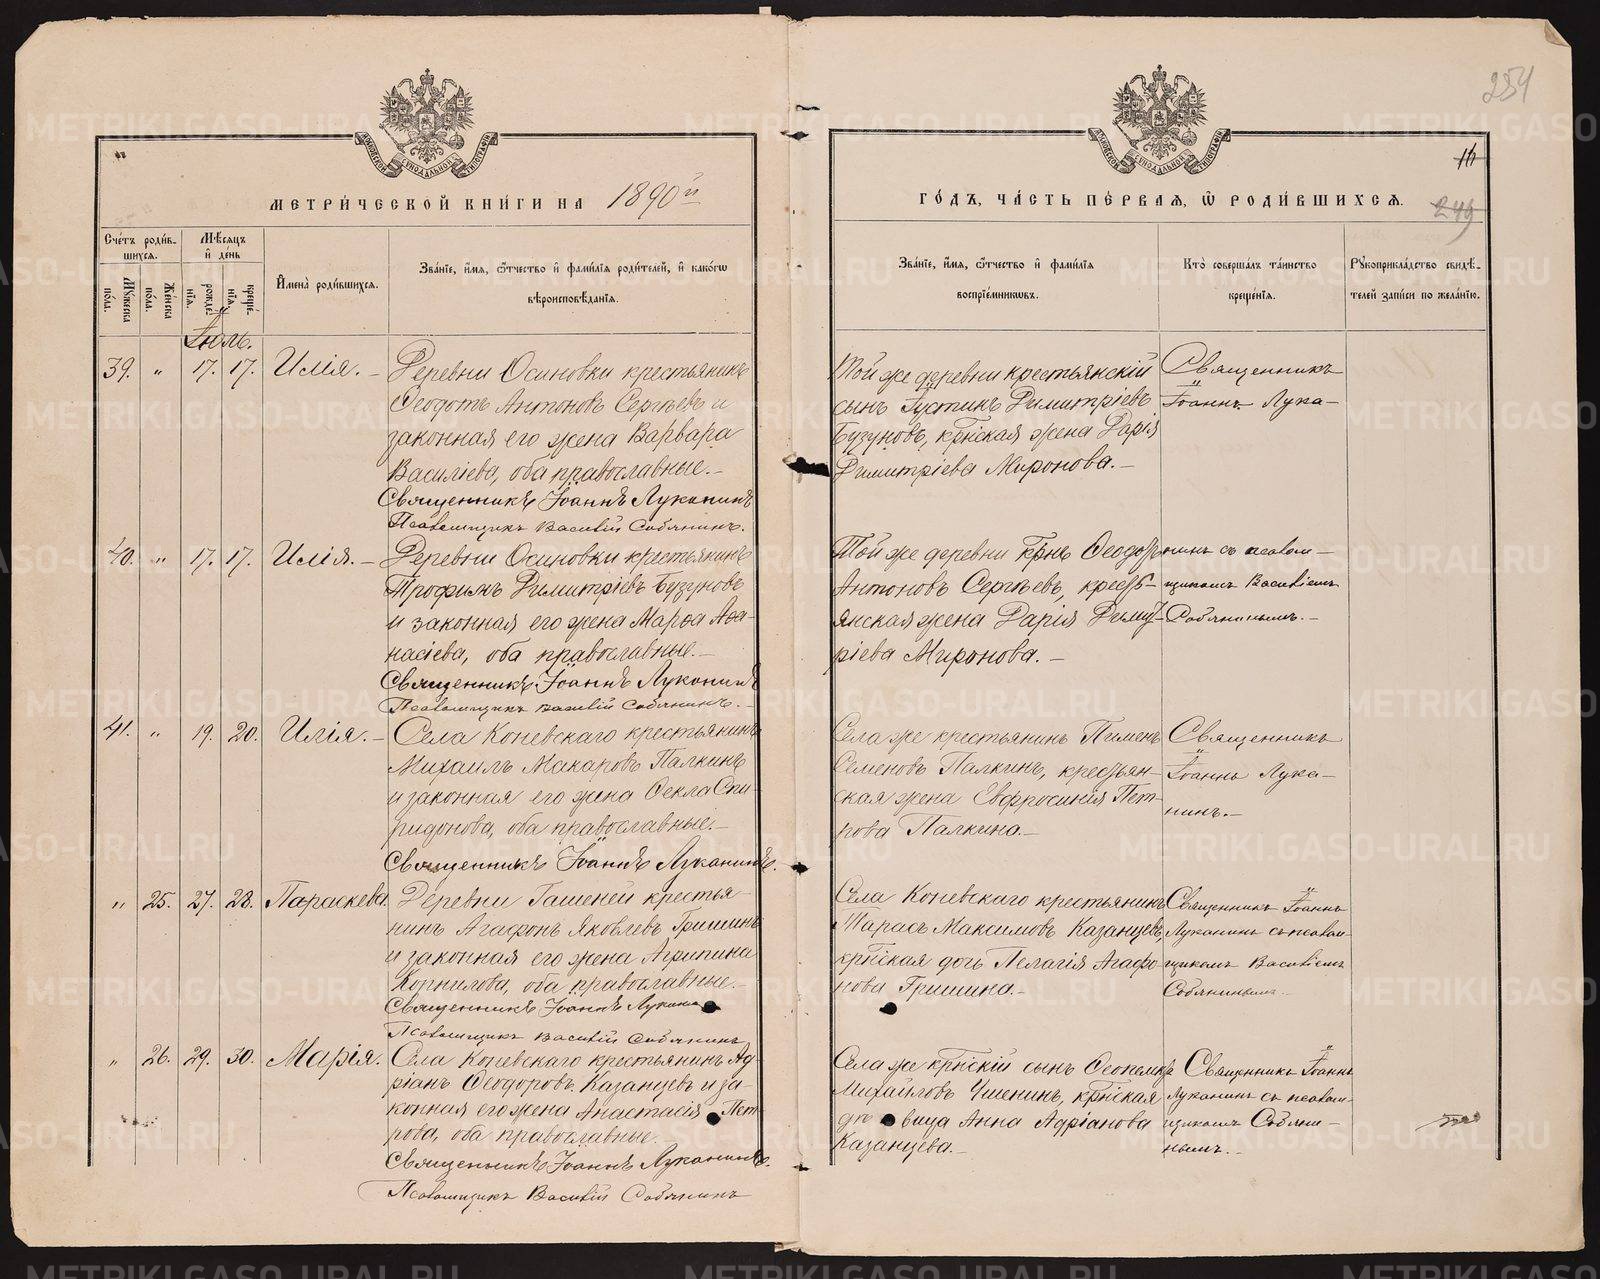 254
МОСКОВСКОЙ СѴНОДАЛЬНОЙ ТИПОГРАФІИ
МОСКОВСКОЙ СѴНОДАЛЬНОЙ ТИПОГРАФІИ
МЕТРИ́ЧЕСКОЙ КНИ́ГИ НА 1890й
ГО́ДЪ, ЧА́СТЬ ПЕ́РВАЯ, Ѽ РОДИ́ВШИХСЯ.
249
Сче́тъ роди́в-
шихся.
Му́жеска по́ла.
Же́нска по́ла.
Мѣ́сяцъ
и҆ де́нь
рожде́-
нїя.
креще́-
нїя.
И҆мена̀ роди́вшихся.
Зва́нїе, и҆́мя, ѻ҆́тчество и҆ фами́лїя роди́телей, и҆ како́гѡ
вѣроисповѣ́данїя.
Зва́нїе, и҆́мя, ѻ҆́тчество и҆ фами́лїя
воспрїе́мникѡвъ.
Кто̀ соверша́лъ та́инство
креще́нїя.
Рꙋкоприкла́дство свидѣ́-
телей за́писи по жела́нїю.
Іюль.
39. " 17. 17. Илія. – Деревни Осиновки крестьянинъ
Ѳеодотъ Антоновъ Сергѣевъ и
законная его жена Варвара
Василіева, оба православные. –
Священникъ Іоаннъ Луканинъ
Псаломщикъ Василій Собянинъ.
Той же деревни крестьянскій
сынъ Іустинъ Димитріевъ
Бузуновъ, кр̃нская жена Дарія
Димитріева Миронова. –
Священникъ
Іоаннъ Лука-
40. " 17. 17. Илія. – Деревни Осиновки крестьянинъ
Трофимъ Димитріевъ Бузуновъ
и законная его жена Марѳа Аѳа-
насіева, оба православные. –
Священникъ Іоаннъ Луканинъ
Псаломщикъ Василій Собянинъ. –
Той же деревни кр̃нъ Ѳеодотъ
Антоновъ Сергѣевъ, крестъ-
янская жена Дарія Димит-
ріева Миронова. –
нинъ съ псалом-
щикомъ Василіемъ
Собянинымъ. –
41. " 19. 20. Илія. – Села Коневскаго крестьянинъ
Михаилъ Макаровъ Палкинъ
и законная его жена Ѳекла Спи-
ридонова, оба православные. –
Священникъ Іоаннъ Луканинъ.
Села же крестьянинъ Пименъ
Семеновъ Палкинъ, крестьян-
ская жена Евфросинія Пет-
рова Палкина. –
Священникъ
Іоаннъ Лука-
нинъ. –
" 25. 27. 28. Параскева. Деревни Гашеней крестья-
нинъ Агафонъ Яковлевъ Гришинъ
и законная его жена Агрипина
Корнилова, оба православные. –
Священникъ Іоаннъ Лукани
Псаломщикъ Василій Собянинъ
Села Коневскаго крестьянинъ
Тарасъ Максимовъ Казанцевъ,
кр̃нская дочь Пелагія Агафо-
нова Гришина. –
Священникъ Іоаннъ
Луканинъ съ псалом-
щикомъ Василіемъ
Собянинымъ. –
" 26. 29. 30. Марія. Села Коневскаго крестьянинъ Ад-
ріанъ Ѳеодоровъ Казанцевъ и за-
конная его жена Анастасія Пет-
рова, оба православные.
Священникъ Іоаннъ Луканинъ.
Псаломщикъ Василій Собянинъ
Села же кр̃нскій сынъ Ѳеопемптъ
Михайловъ Ушенинъ, кр̃нская
дѣвица Анна Адріанова
Казанцева. –
Священникъ Іоаннъ
Луканинъ съ псалом-
щикомъ Собяни-
нымъ. –
METRIKI.GASO-URAL.RU